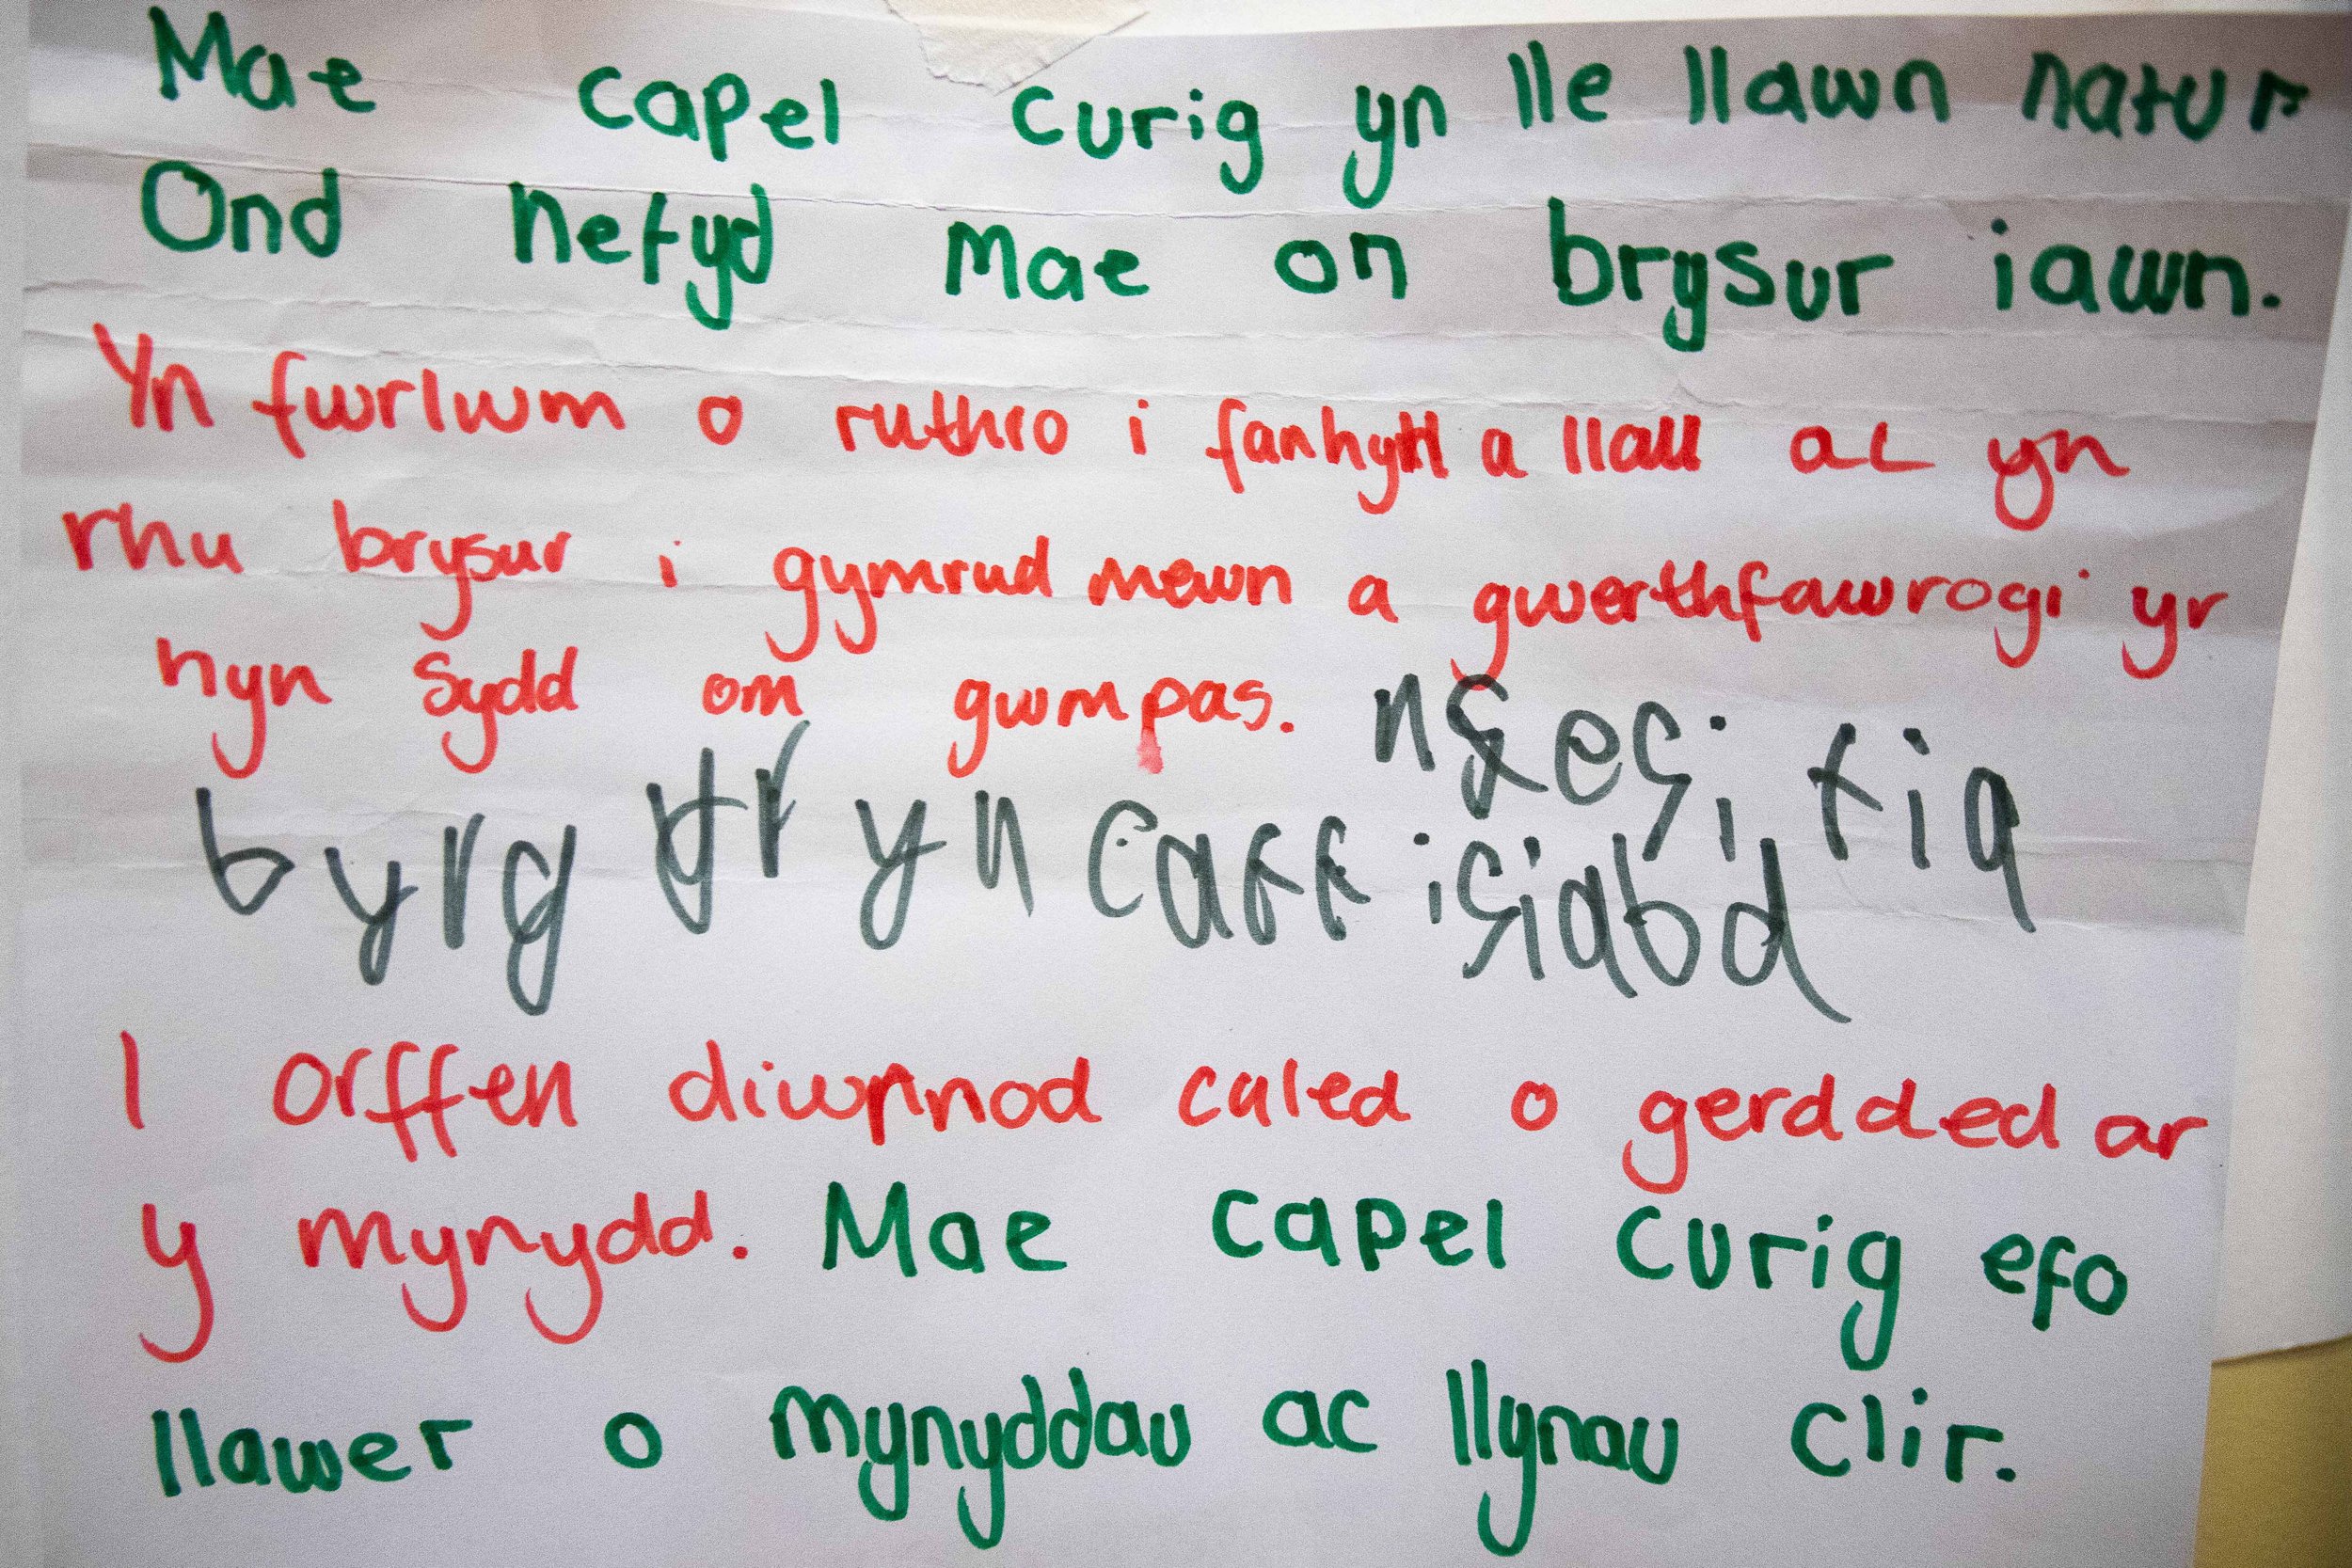 Mae capel curig yn lle llawn natur
Ond hefyd Mae on brysur iawn.
Yn fwrlwm o ruthro i a llall ac yn
rhu brysur i gymrud mewn a gwerthfawrogi yr
hyn sydd om gwmpas.
byrg yn caff
I orffen diwrnod caled o gerdded ar
y mynydd. Mae capel curig efo
llawer o mynyddau ac llynau clir.